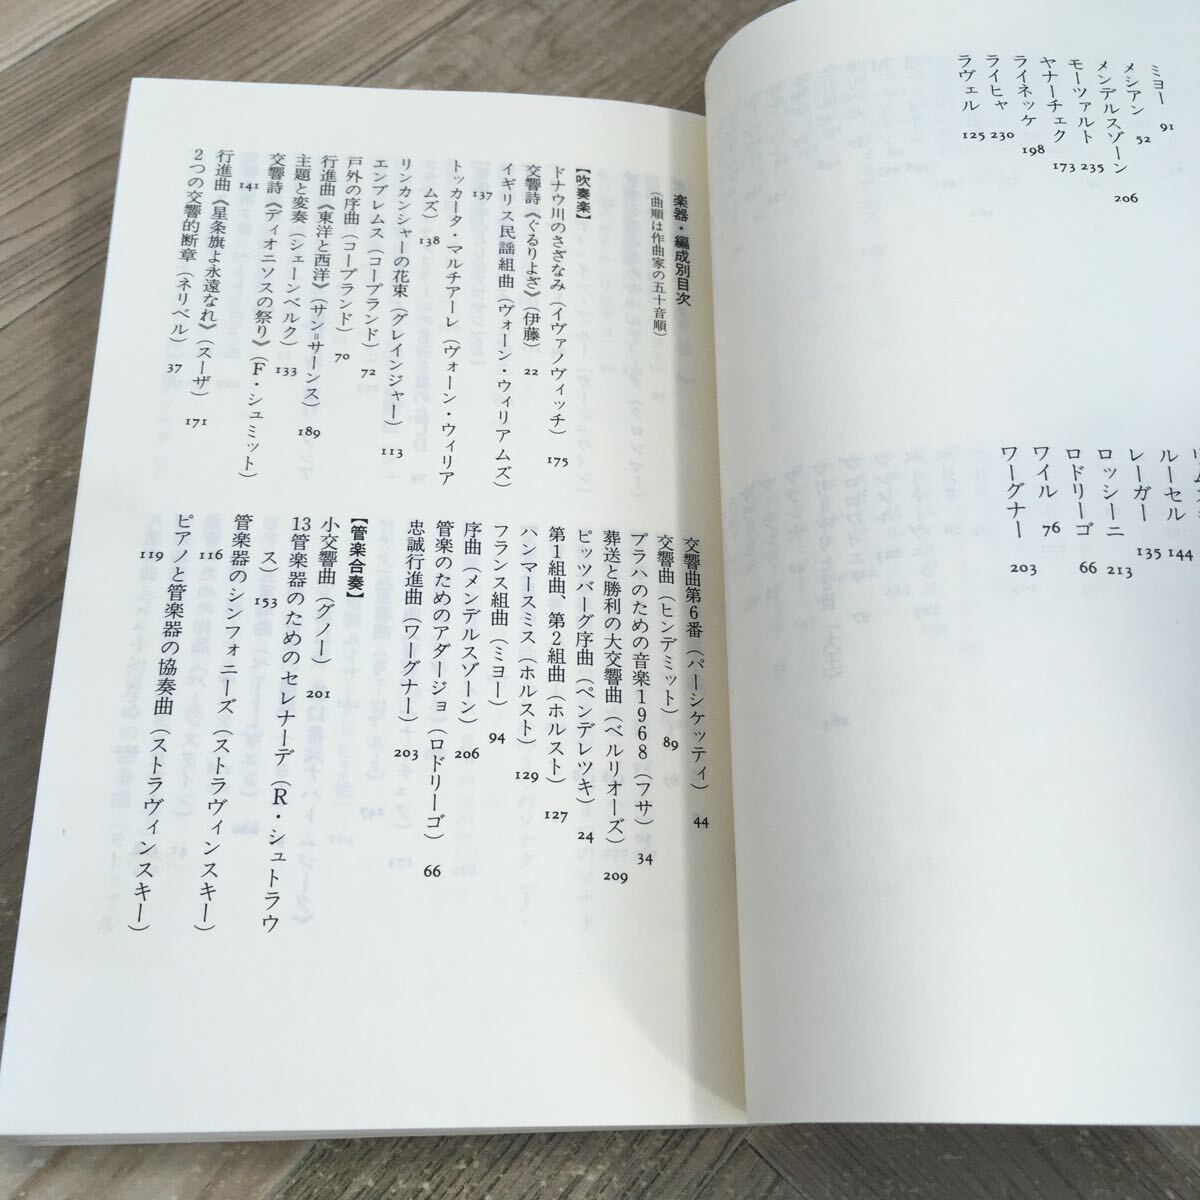 ミヨー 91
メシアン 52
メンデルスゾーン 206
モーツァルト 235
ヤナーチェク 173
ライネッケ 198
ライヒャ 230
ラヴェル 125
ルーセル 144
レーガー 135
ロッシーニ 213
ロドリーゴ 66
ワイル 76
ワーグナー 203
楽器・編成別目次
(曲順は作曲家の五十音順)
【吹奏楽】
ドナウ川のさざなみ(イヴァノヴィッチ) 175
交響詩《ぐるりよざ》(伊藤) 22
イギリス民謡組曲(ヴォーン・ウィリアムズ)
137
トッカータ・マルチアーレ(ヴォーン・ウィリア
ムズ) 138
リンカンシャーの花束(グレインジャー) 113
エンブレムス(コープランド) 72
戸外の序曲(コープランド) 70
行進曲《東洋と西洋》(サン=サーンス) 189
主題と変奏(シェーンベルク) 133
交響詩《ディオニソスの祭り》(F・シュミット)
141
行進曲《星条旗よ永遠なれ》(スーザ) 171
2つの交響的断章(ネリベル) 37
交響曲第6番(パーシケッティ) 44
交響曲(ヒンデミット) 89
プラハのための音楽1968(フサ) 34
葬送と勝利の大交響曲(ベルリオーズ) 209
ピッツバーグ序曲(ペンデレツキ) 24
第1組曲、第2組曲(ホルスト) 127
ハンマースミス(ホルスト) 129
フランス組曲(ミヨー) 94
序曲(メンデルスゾーン) 206
管楽のためのアダージョ(ロドリーゴ) 66
忠誠行進曲(ワーグナー) 203
【管楽合奏】
小交響曲(グノー) 201
13管楽器のためのセレナーデ(R・シュトラウ
ス) 153
管楽器のシンフォニーズ(ストラヴィンスキー)
116
ピアノと管楽器の協奏曲(ストラヴィンスキー)
119